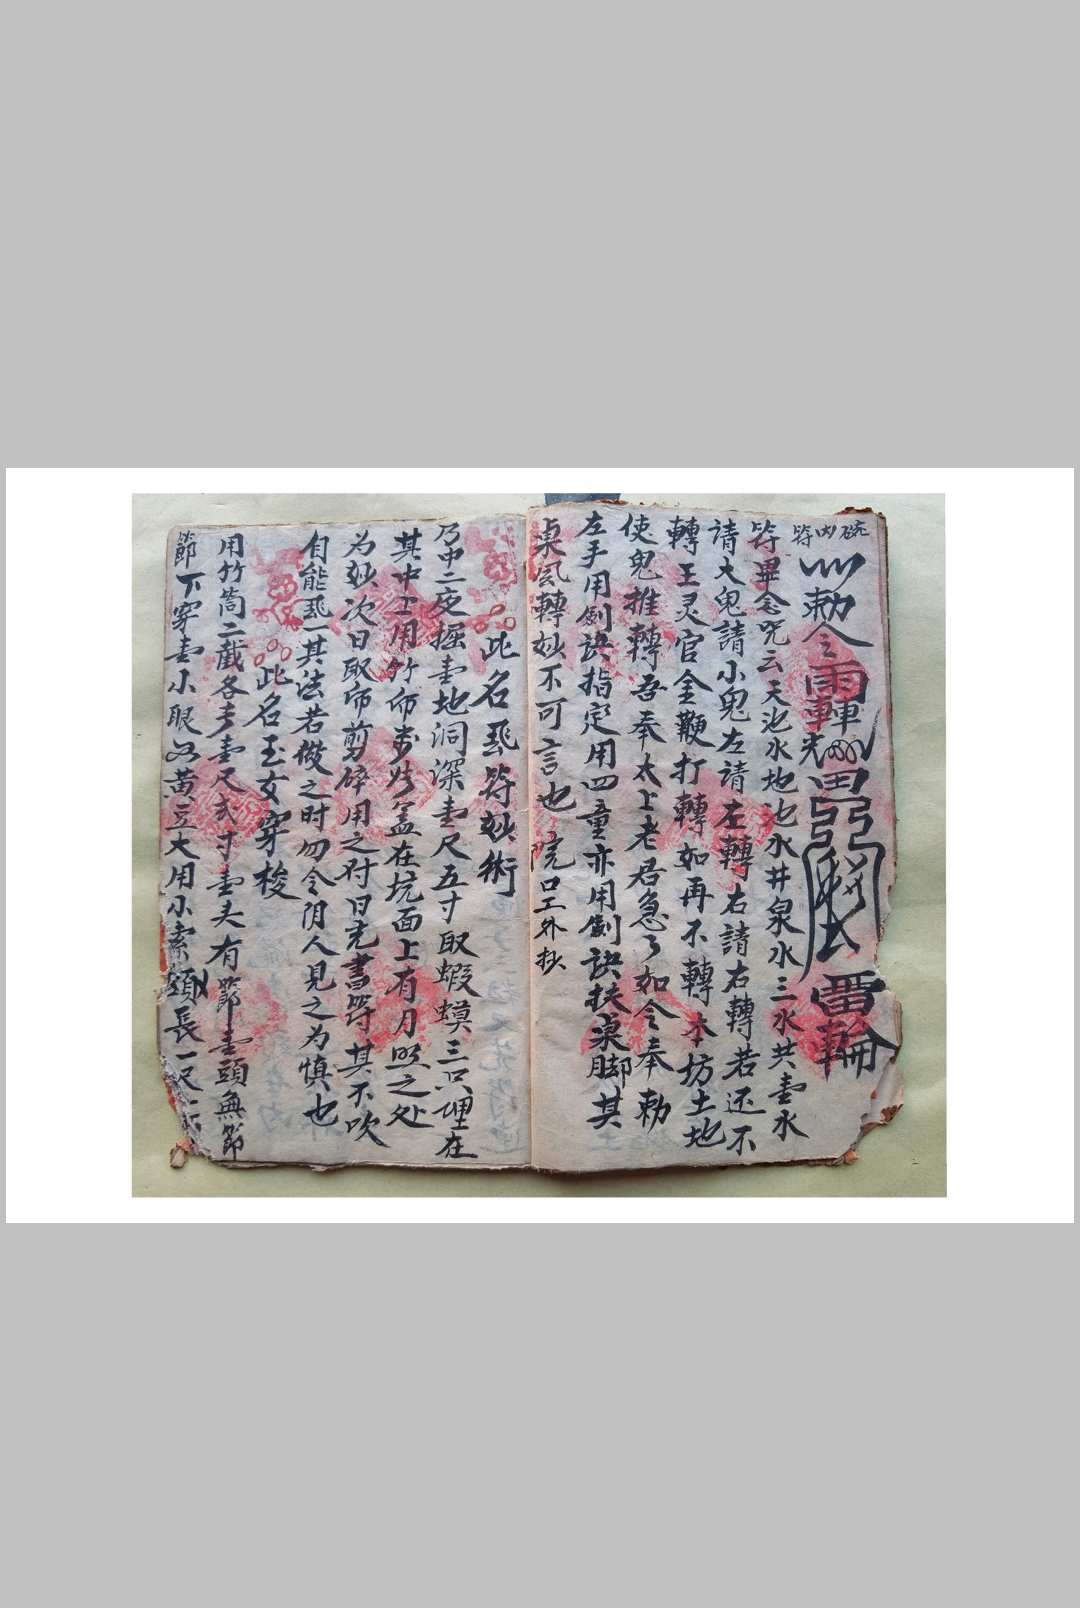 碗内符
敕令
雷輪
符畢念咒云天池水地池水井泉水三水共壹水
请大鬼請小鬼左請左轉右請右轉若还不
轉王灵官金鞭打轉如再不轉本坊土地
使鬼推轉吾奉太上老君急了如令奉勅
左手用劍訣指定用四童亦用劍訣扶桌脚其
桌風轉妙不可言也
此名飛符妙術
乃中二度掘壹地洞深壹尺五寸取蝦蟆三只埋在
其中上用竹布盖在坑面上有月照之处
为妙次日取布剪碎用之时日先書符其不吹
自能飛其法若做之时勿令阴人見之为慎也
此名玉女穿梭
用竹筒二戲各長壹尺弍寸壹头有節壹頭無節
節下穿壹小眼如黄豆大用小索頭長一尺